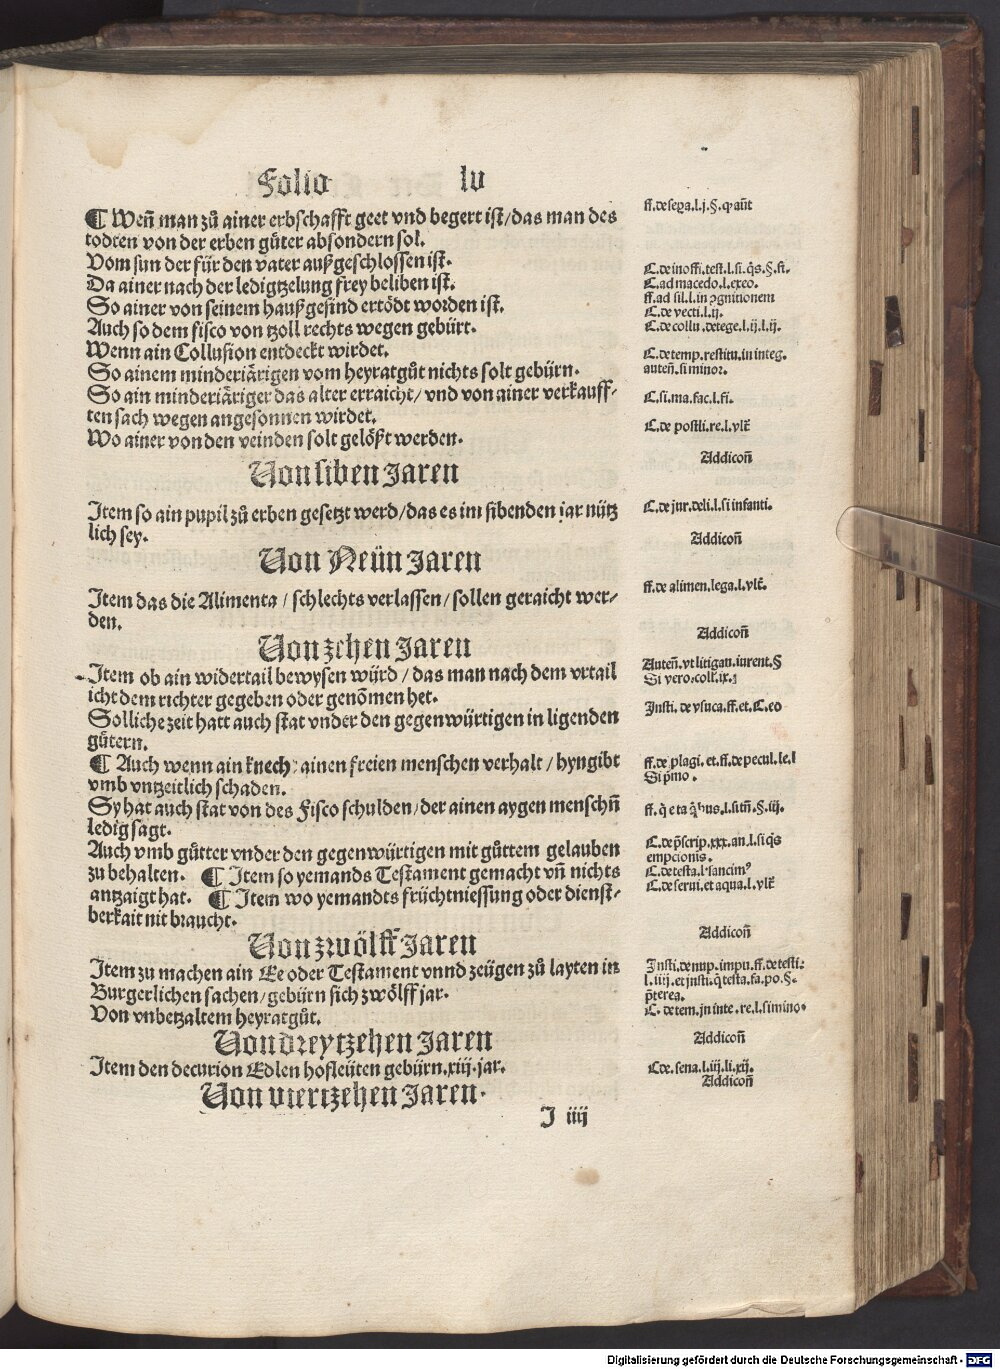 Folio lv
¶ Wen̄ man zů ainer erbschafft geet vnd begert ist/das man des
todten von der erben gůter absondern sol.
Vom sun der für den vater außgeschlossen ist.
Da ainer nach der ledigtzelung frey beliben ist.
So ainer von seinem haußgesind ertödt worden ist.
Auch so dem fisco von tzoll rechts wegen gebürt.
Wenn ain Collusion entdeckt wirdet.
So ainem minderiärigen vom heyratgůt nichts solt gebürn.
So ain minderiäriger das alter erraicht/ vnd von ainer verkauff-
ten sach wegen angesonnen wirdet.
Wo ainer von den veinden solt gelößt werden.
Von siben Jaren
Item so ain pupil zů erben gesetzt werd/das es im sibenden jar nütz
lich sey.
Von Neün Jaren
Item das die Alimenta / schlechts verlassen/ sollen geraicht wer-
den.
Von zehen Jaren
Item ob ain widertail bewysen würd / das man nach dem vrtail
icht dem richter gegeben oder genōmen het.
Solliche zeit hatt auch stat vnder den gegenwürtigen in ligenden
gůtern.
¶ Auch wenn ain knech ainen freien menschen verhalt / hyngibt
vmb vntzeitlich schaden.
Sy hat auch stat von des Fisco schulden/ der ainen aygen menschn̄
ledig sagt.
Auch vmb gůtter vnder den gegenwürtigen mit gůttem gelauben
zu behalten. ¶ Item so yemands Testament gemacht vn̄ nichts
antzaigt hat. ¶ Item wo yemandts früchtniessung oder dienst-
berkait nit braucht.
Von zwölff Jaren
Item zu machen ain Ee oder Testament vnnd zeügen zů layten in
Burgerlichen sachen/ gebürn sich zwölff jar.
Von vnbetzaltem heyratgůt.
Von dreytzehen Jaren
Item den decurion Edlen hofleüten gebürn.xiij.jar.
Von viertzehen Jaren.
J iiij
ff. de sepa.l.j.§.
C. de inoffi. test.l.si.q̄s.§.fi.
C. ad macedo.l.exeo.
ff. ad sil.l.in ꝯgnitionem
C. de vecti.l.ij.
C. de collu.detege.l.ij.l.ij.
C. de temp.restitu.in integ.
auten̄.si minor.
C. si.ma.fac.l.fi.
C. de postli.re.l.vlt̄
Addicon̄
C. de jur.deli.l.si infanti.
Addicon̄
ff. de alimen.lega.l.vlt̄.
Addicon̄
Auten̄.vt litigan.iurent.§
Si vero.coll.ix.
Insti. de vsuca.ff.et.C.eo
ff. de plagi.et.ff.de pecul.le.l
Si p̄mo.
C. de p̄scrip.xxx.an.l.si q̄s
empcionis.
C. de testa.l.sancimꝰ
C. de serui.et aqua.l.vlt̄
Addicon̄
Insti. de nup.impu.ff.de testi:
l.iiij.et insti.q̄ testa.fa.po.§.
p̄terea.
C. de tem.in inte.re.l.si mino.
Addicon̄
Addicon̄
Digitalisierung gefördert durch die Deutsche Forschungsgemeinschaft - DFG